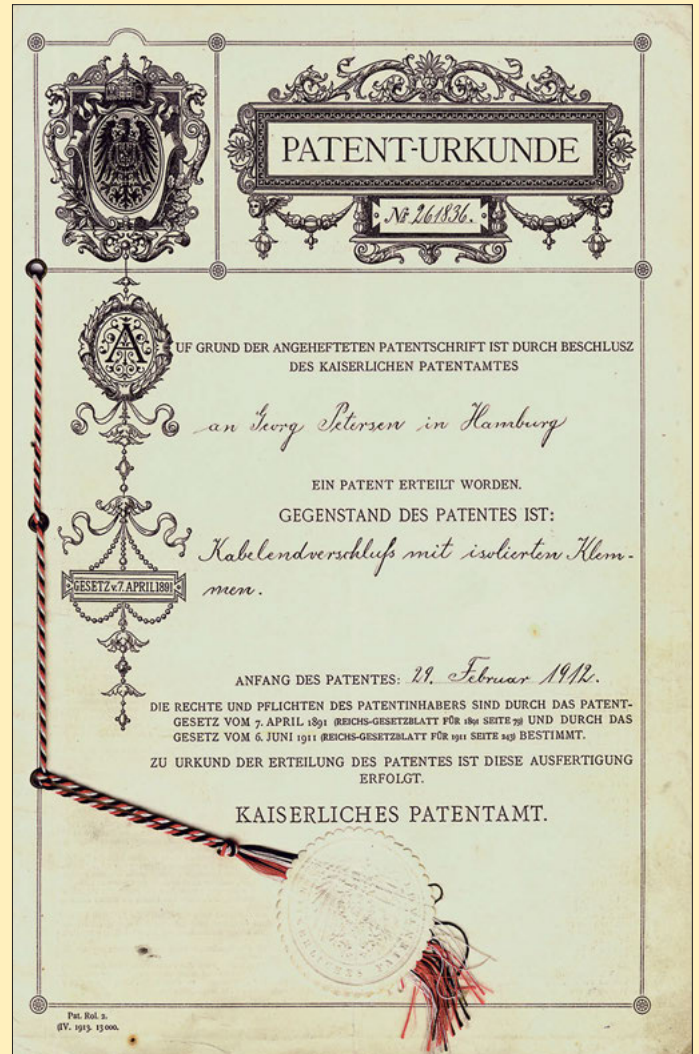 PATENT-URKUNDE
№ 261836.
AUF GRUND DER ANGEHEFTETEN PATENTSCHRIFT IST DURCH BESCHLUSZ
DES KAISERLICHEN PATENTAMTES
an Georg Petersen in Hamburg
EIN PATENT ERTEILT WORDEN.
GEGENSTAND DES PATENTES IST:
Kabelendverschluß mit isolierten Klem-
men.
GESETZ v. 7. APRIL 1891
ANFANG DES PATENTES: 29. Februar 1912.
DIE RECHTE UND PFLICHTEN DES PATENTINHABERS SIND DURCH DAS PATENT-
GESETZ VOM 7. APRIL 1891 (REICHS-GESETZBLATT FÜR 1891 SEITE 79) UND DURCH DAS
GESETZ VOM 6. JUNI 1911 (REICHS-GESETZBLATT FÜR 1911 SEITE 243) BESTIMMT.
ZU URKUND DER ERTEILUNG DES PATENTES IST DIESE AUSFERTIGUNG
ERFOLGT.
KAISERLICHES PATENTAMT.
Pat. Rol. 2.
(IV. 1913. 15000.